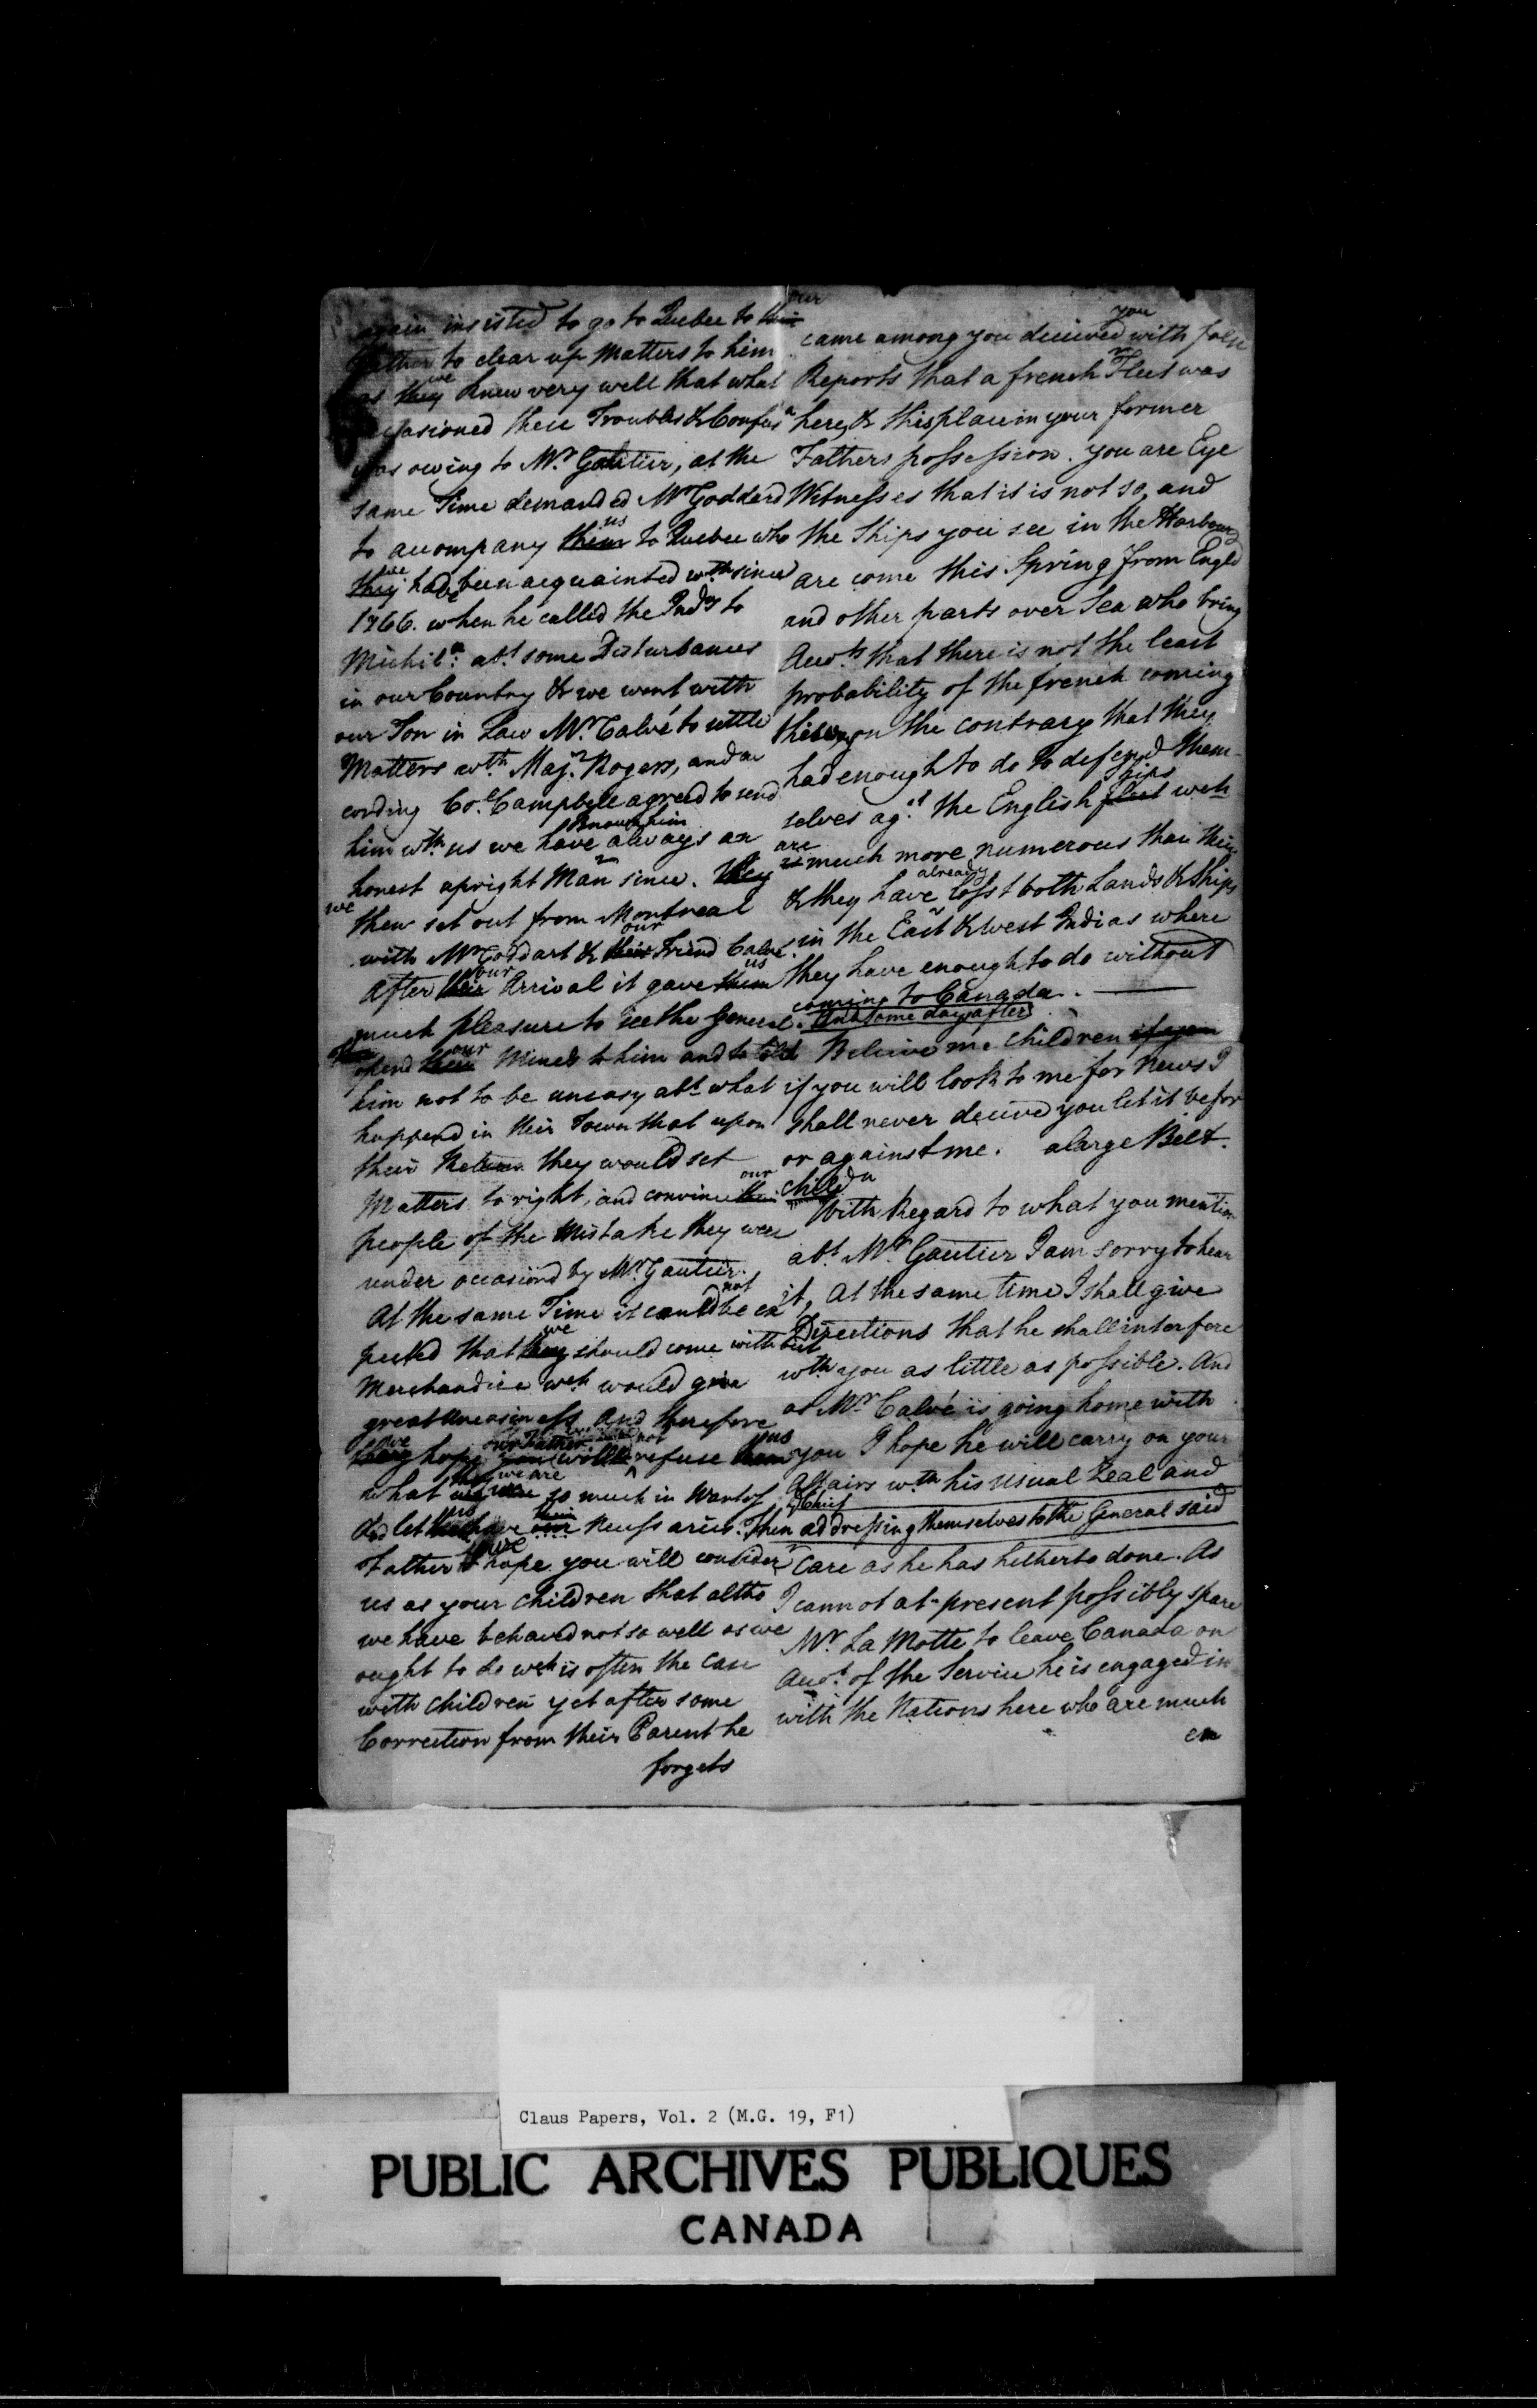 again insisted to go to Quebec to their our
Father to clear up Matters to him
as they we knew very well that what
occasioned these Troubles & Confusn
was owing to Mr. Gautier, at the
same Time demanded Mr Goddard
to accompany them us to Quebec who
they we had been acquainted wth since
1766. when he called the Inds to
Michiln. abt some Disturbances
in our Country & we went with
our Son in Law Mr. Calvé to settle
Matters wth. Majr. Rogers, and ac
cording Col. Campbell agreed to send
him wth us we have always known him an
honest upright Man since. They
we then set out from Montreal
with Mr Goddart & their our Friend Calvé.
After their our Arrival it gave them us
much pleasure to see the General.
opend their our Minds to him and to told
him not to be uneasy abt what
happend in their Town that upon
their Return they would set
Matters to right, and convince their our
people of the Mistake they were
under occasiond by Mr. Gautier.
At the same Time it could not be ex
pected that they we should come without
Merchandice wch would give
great uneasiness and therefore
they we hope you our Father will not refuse them us
what we are so much in Want of
And let us have our their Necessaries. Then
Father I we hope you will consider
us as your children that altho
we have behaved not so well as we
ought to do wch is often the Case
with children yet after some
Correction from their Parent he
forgets
came among you deceived you with false
Reports that a french Fleet was
here, & this place in your former
Fathers possession. you are Eye
Witnesses that it is not so, and
the Ships you see in the Harbour
are come this Spring from Engld
and other parts over Sea who bring
Accots that there is not the least
probability of the french coming
hither, on the contrary that they
had enough to do to defend them-
selves agst the English fleet ships wch
is are much more numerous than their
& they have already lost both Lands & Ships
in the East & West Indias where
they have enough to do without
coming to Canada.
And some days after
Believe me Children if you
if you will look to me for News I
shall never deceive you let it be for
or against me. a large Belt.
Childn
With Regard to what you mention
abt. Mr. Gautier I am sorry to hear
it, At the same time I shall give
Directions that he shall interfere
wth you as little as possible. And
as Mr. Calvé is going home with
you I hope he will carry on your
Affairs wth his usual Zeal and
Chief
addressing themselves to the General said
Care as he has hitherto done. As
I cannot at present possibly spare
Mr. La Motte to leave Canada on
Accot. of the Service he is engaged in
with the Nations here who are much
en
Claus Papers, Vol. 2 (M.G. 19, F1)
PUBLIC ARCHIVES PUBLIQUES
CANADA